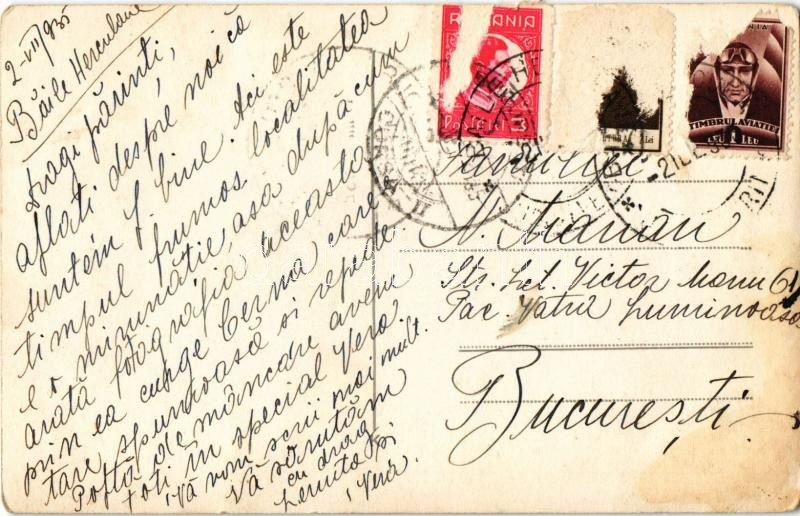 2-VII 935
Băile Herculane
Dragi părinți,
aflati despre noi că
suntem f bine. Aci este
timpul frumos localitatea
e o minunăție, asa după cum
arată fotografia aceasta
prin ea curge Cerna care
tare spumoasă si repede
Poftă de mâncare avem
toti în special Vera.
Vă vom scrii mai mult.
Vă sărutăm
cu drag
Lenuta și
Vera
ROMANIA
POSTA
Familiei
N. Marian
Str. Lct. Victor Manu 61
Parc. Vatra Luminoasă
București
TIMBRUL AVIATIEI
LEU 1 LEU